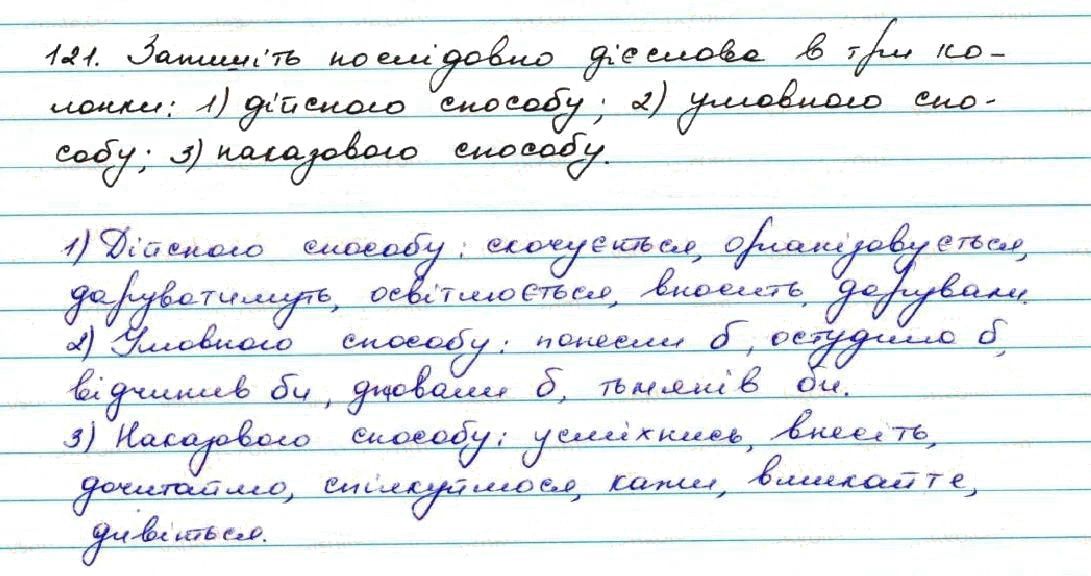 121. Запишіть послідовно дієслова в три ко-
лонки: 1) дійсного способу; 2) умовного спо-
собу; 3) наказового способу.
1) Дійсного способу: скочується, організовується,
даруватимуть, освітлюється, вносить, дарували.
2) Умовного способу: понесли б, остудило б,
відчинив би, дювали б, тьмянів би.
3) Наказового способу: усміхнись, внесіть,
дочитаймо, спілкуймося, кажи, вмикайте,
дивіться.